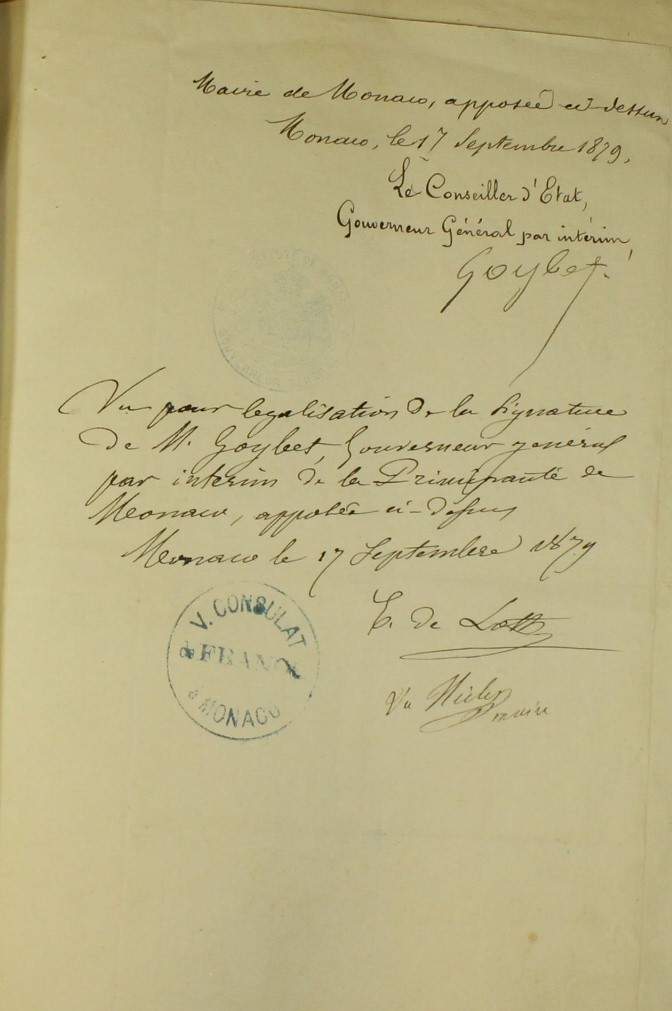 Maire de Monaco, apposée ci-dessus
Monaco, le 17 Septembre 1879,
Le Conseiller d'Etat,
Gouverneur Général par intérim,
Goybet.
Vu pour légalisation de la signature
de M. Goybet, Gouverneur général
par interim de la Principauté de
Monaco, apposée ci-dessus
Monaco le 17 Septembre 1879
V. CONSULAT
de FRANCE
à MONACO
E. de
Vu
maire